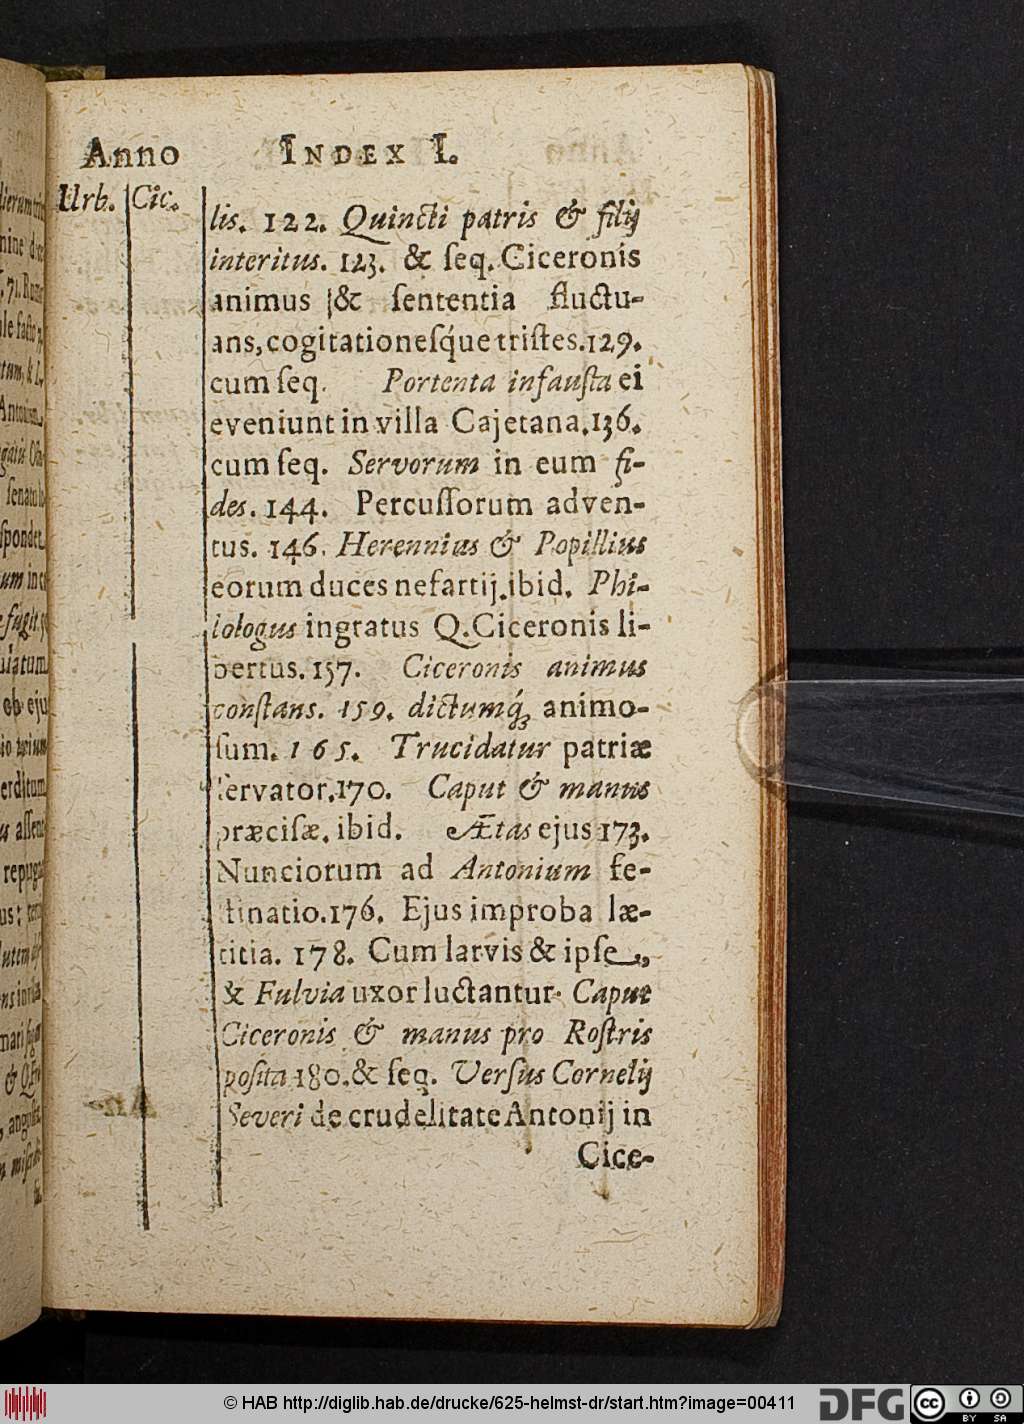 Anno INDEX I.
Urb. Cic.
lis. 122. Quincti patris & filij
interitus. 123. & ſeq. Ciceronis
animus & ſententia fluctu-
ans, cogitationeſq́ue triſtes. 129.
cum ſeq. Portenta infauſta ei
eveniunt in villa Cajetana. 136.
cum ſeq. Servorum in eum fi-
des. 144. Percuſſorum adven-
tus. 146. Herennius & Popillius
eorum duces nefartij. ibid. Phi-
lologus ingratus Q. Ciceronis li-
bertus. 157. Ciceronis animus
conſtans. 159. dictumq́; animo-
ſum. 165. Trucidatur patriæ
ſervator. 170. Caput & manus
præciſæ. ibid. Ætas ejus 173.
Nunciorum ad Antonium fe-
ſtinatio. 176. Ejus improba læ-
titia. 178. Cum larvis & ipſe,
& Fulvia uxor luctantur. Caput
Ciceronis & manus pro Roſtris
poſita 180. & ſeq. Verſus Cornelij
Severi de crudelitate Antonij in
Cice-
© HAB http://diglib.hab.de/drucke/625-helmst-dr/start.htm?image=00411
DFG
cc BY SA